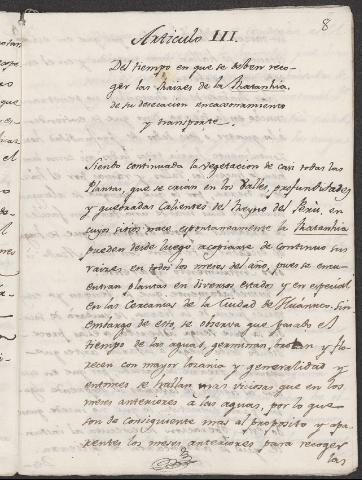 8
Articulo III.
Del tiempo en que se deben reco-
ger las Raizes de la Ratanhia,
de su desecacion encaxonamiento
y transporte.
Siendo continuada la vegetacion de casi todas las
Plantas, que se crian en los Valles, profundidades
y quebradas calientes del Reyno del Perù, en
cuyos sitios nace espontaneamente la Ratanhia
pueden desde luego acopiarse de continuo sus
raizes en todos los meses del año, pues se encu-
entran plantas en diversos estados y en especial
en las Cercanias de la Ciudad de Huánuco. Sin
embargo de esto, se observa que pasado el
tiempo de las aguas, germinan, brotan y flo-
recen con mayor lozania y generalidad y
entonces se hallan mas viciosas que en los
meses anteriores à las aguas, por lo que
son de consiguiente mas al proposito y apa-
rentes los meses anteriores para recoger
las